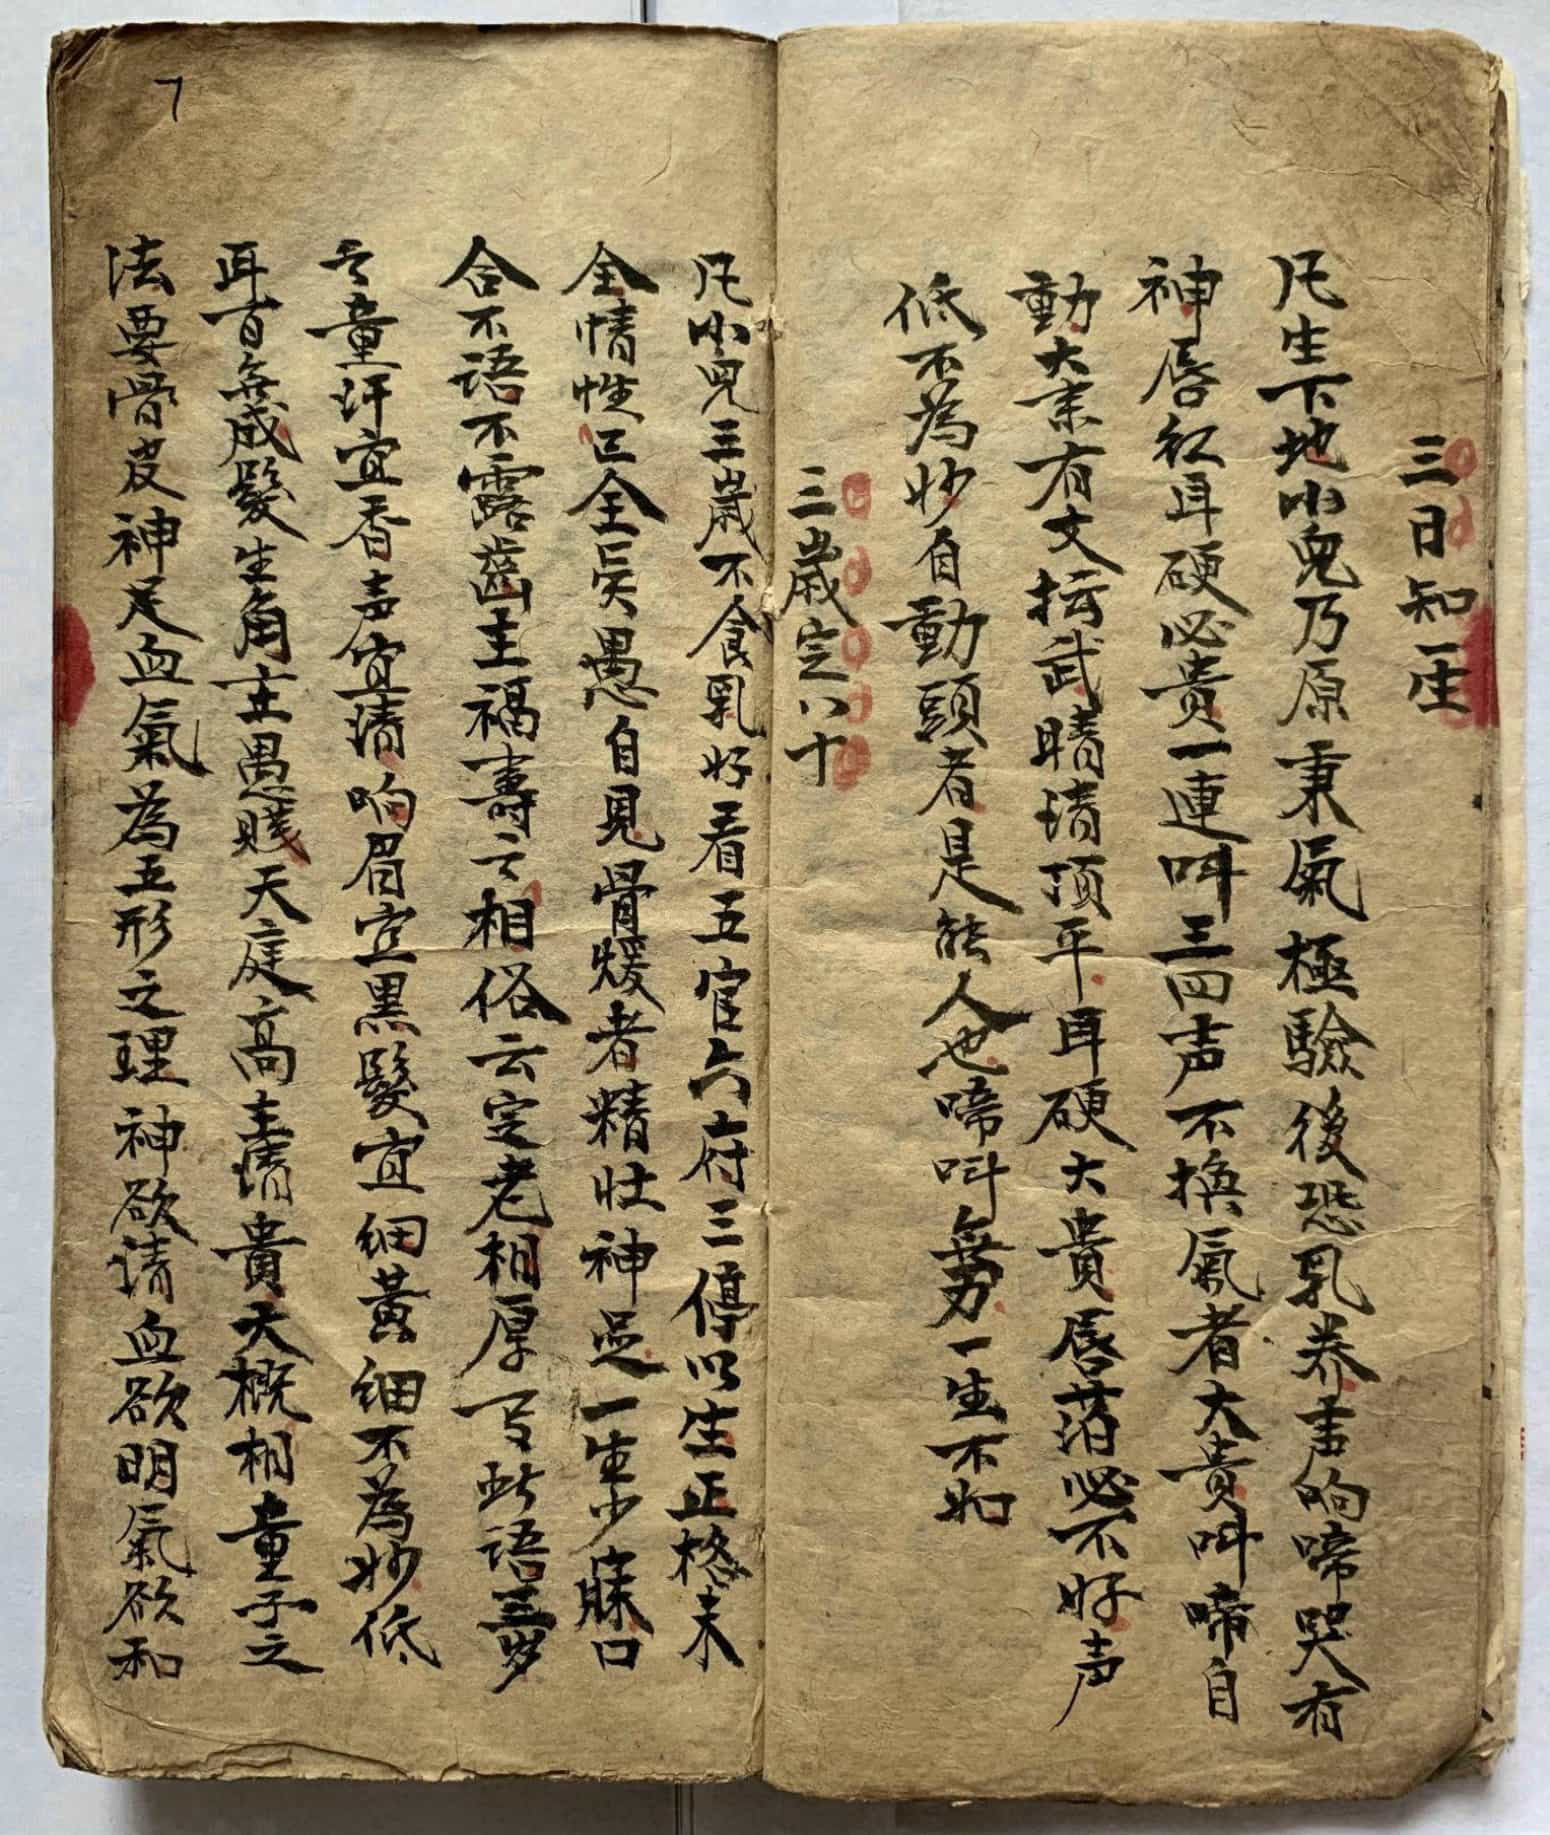 三日知一生
凡生下地小兒乃原秉氣極驗後恐乳养声响啼哭有
神唇紅耳硬必貴一連叫三四声不換氣者大貴叫啼自
動大素有文抎武睛清顶平耳硬大貴唇落必不好声
低不為妙自動頭者是能人也啼叫無力一生不
三歲定八十
凡小兒三歲不食乳好看五官六府三停以生正格未
全情性已全矣愚自見骨煖者精壮神足一生少寐口
合不语不露齒主福壽之相俗云定老相厚丂此语三岁
之童汗宜香声宜清响眉宜黑髮宜细黄细不為妙低
耳百無成髮生角主愚賤天庭高主清貴大概相童子之
法要骨皮神足血氣為五形之理神欲清血欲明氣欲和